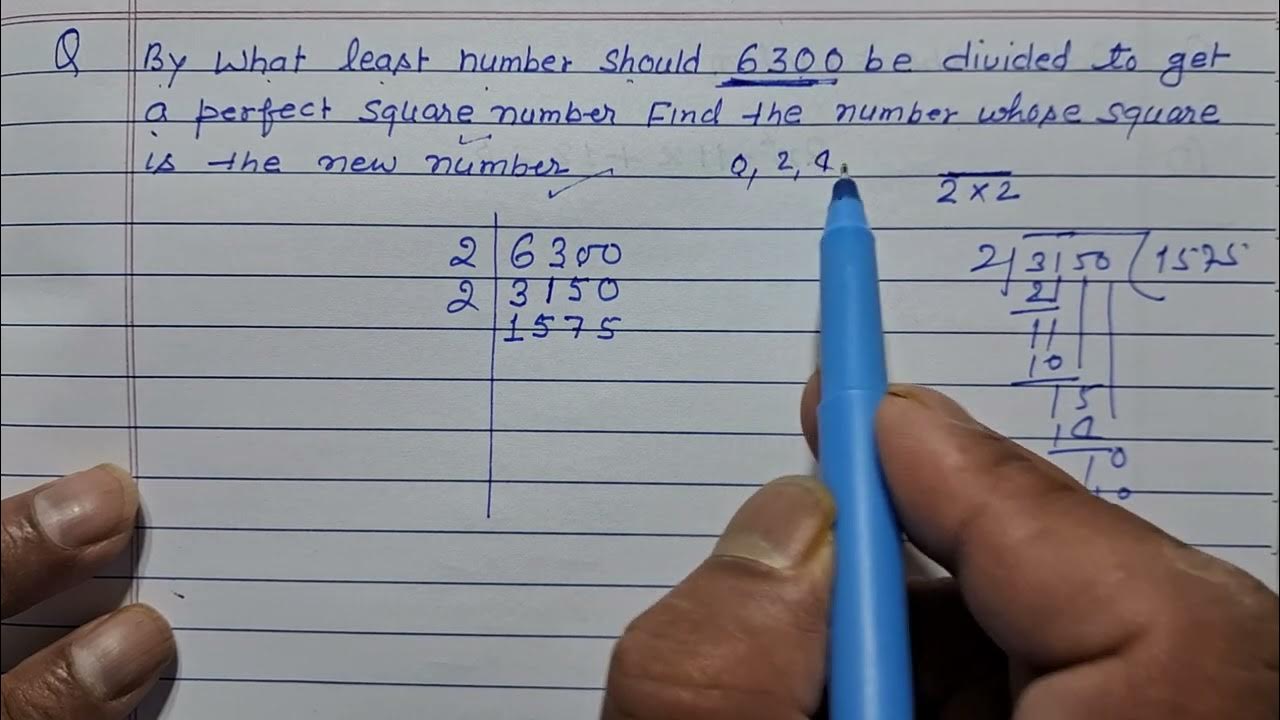 Q By what least number should 6300 be divided to get
a perfect square number Find the number whose square
is the new number
0, 2, 4
2 × 2
2 | 6300
2 | 3150
1575
2 ) 3150 ( 1575
2
11
10
15
14
10
10